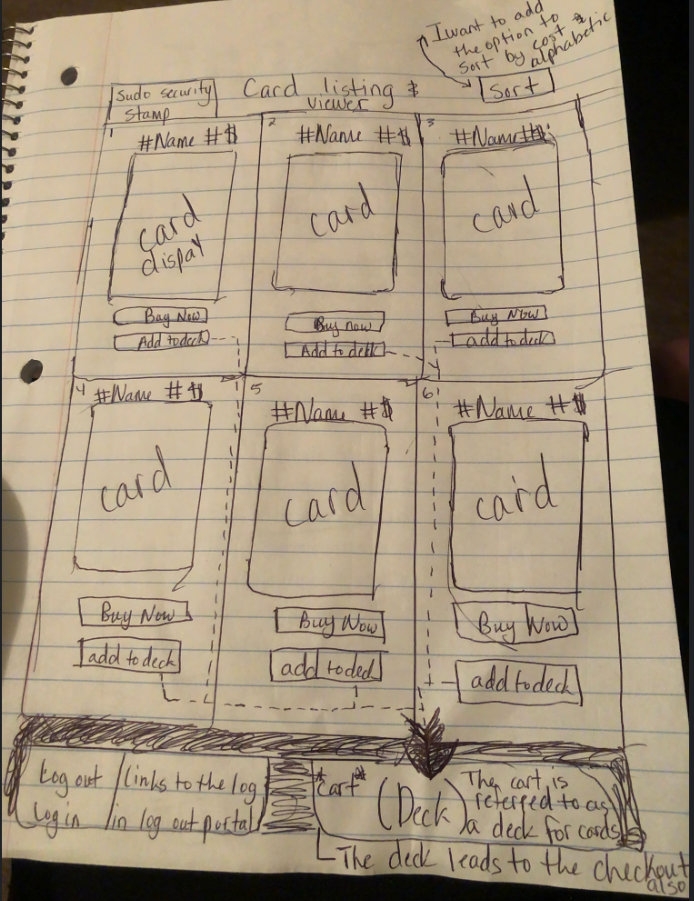 I want to add
the option to
sort by cost &
alphabetic
Sort
Sudo security
stamp
Card listing &
viewer
1
#Name #$
card
dispay
Buy Now
Add to deck
2
#Name #$
card
Buy now
Add to deck
3
#Name #$
card
Buy Now
add to deck
4
#Name #$
card
Buy Now
add to deck
5
#Name #$
card
Buy Now
add to deck
6
#Name #$
card
Buy Now
add to deck
Log out
Log in
links to the log
in log out portal
*cart*
(Deck)
The cart is
referred to as
a deck for cards
The deck leads to the checkout
also